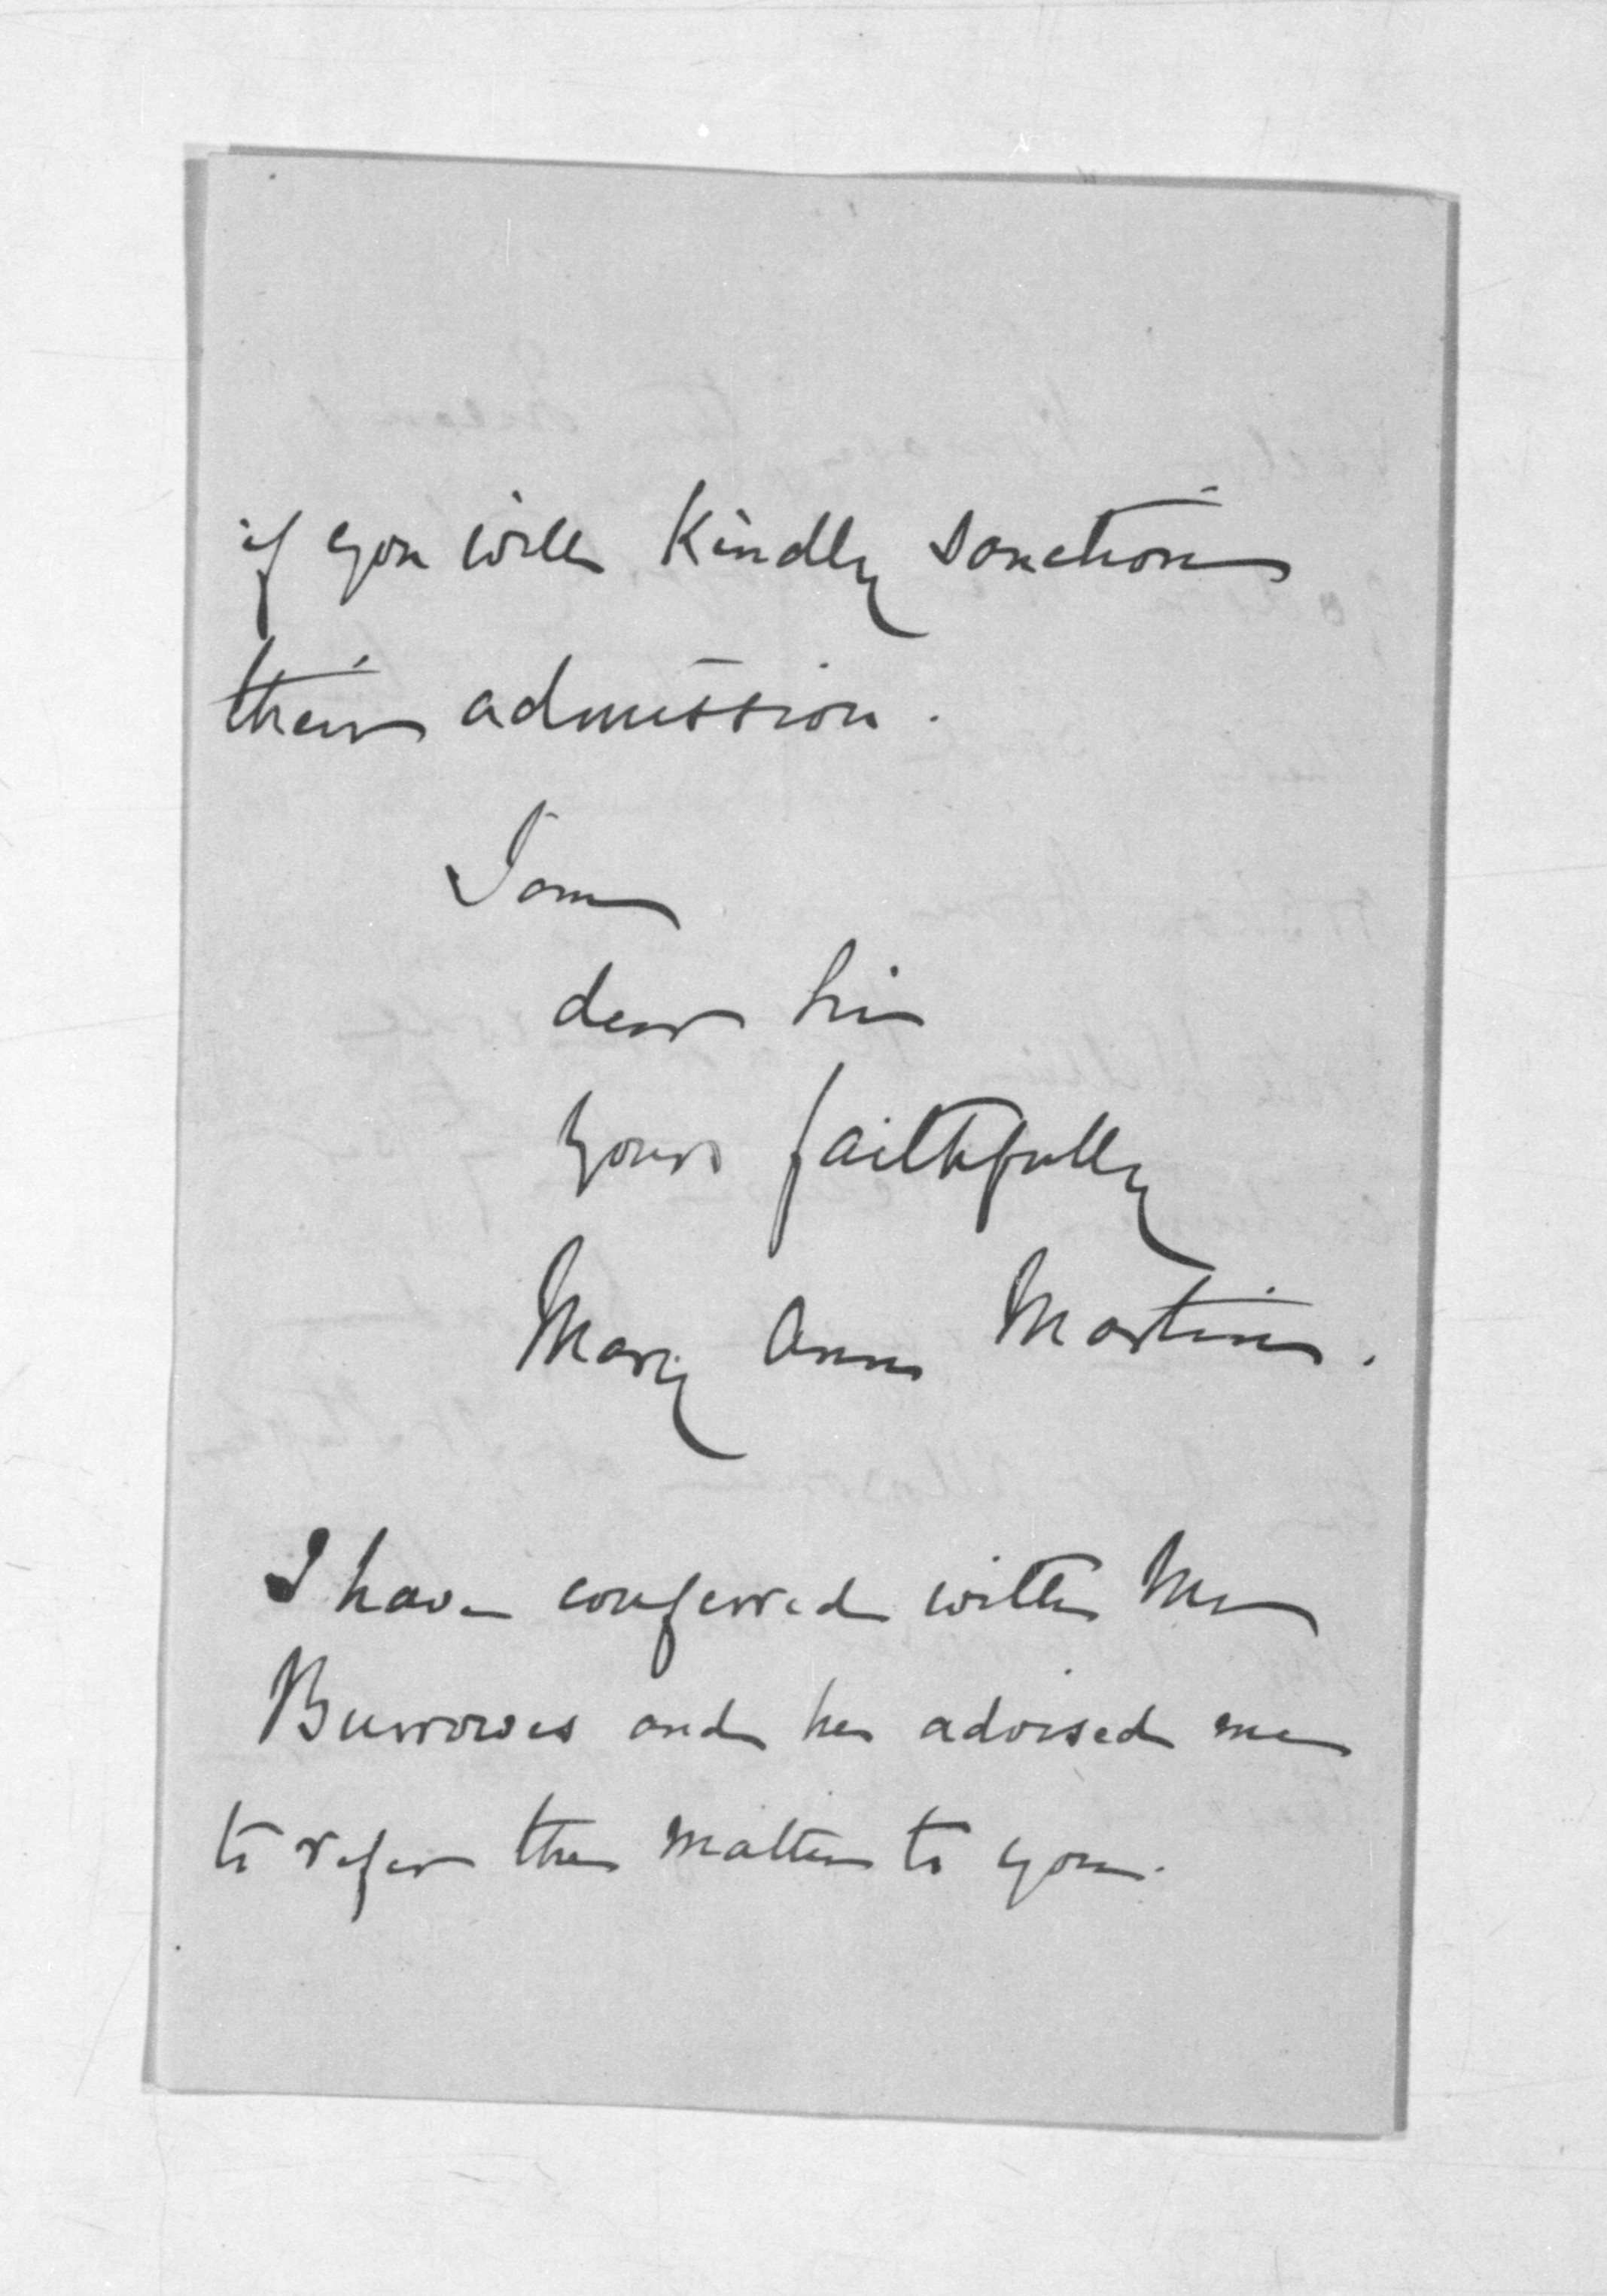 if you will Kindly sanction
their admission.
I am
dear Sir
yours faithfully
Mary Ann Martin.
I have conferred with Mr
Burrowes and he advised me
to refer the matter to you.